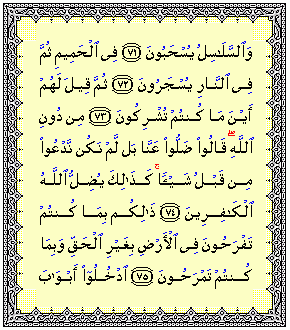 وَٱلسَّلَـٰسِلُ يُسْحَبُونَ ﴿٧١﴾ فِى ٱلْحَمِيمِ ثُمَّ
فِى ٱلنَّارِ يُسْجَرُونَ ﴿٧٢﴾ ثُمَّ قِيلَ لَهُمْ
أَيْنَ مَا كُنتُمْ تُشْرِكُونَ ﴿٧٣﴾ مِن دُونِ
ٱللَّهِۖ قَالُوا۟ ضَلُّوا۟ عَنَّا بَل لَّمْ نَكُن نَّدْعُوا۟
مِن قَبْلُ شَيْـًٔاۚ كَذَٰلِكَ يُضِلُّ ٱللَّهُ
ٱلْكَـٰفِرِينَ ﴿٧٤﴾ ذَٰلِكُم بِمَا كُنتُمْ
تَفْرَحُونَ فِى ٱلْأَرْضِ بِغَيْرِ ٱلْحَقِّ وَبِمَا
كُنتُمْ تَمْرَحُونَ ﴿٧٥﴾ ٱدْخُلُوٓا۟ أَبْوَٰبَ